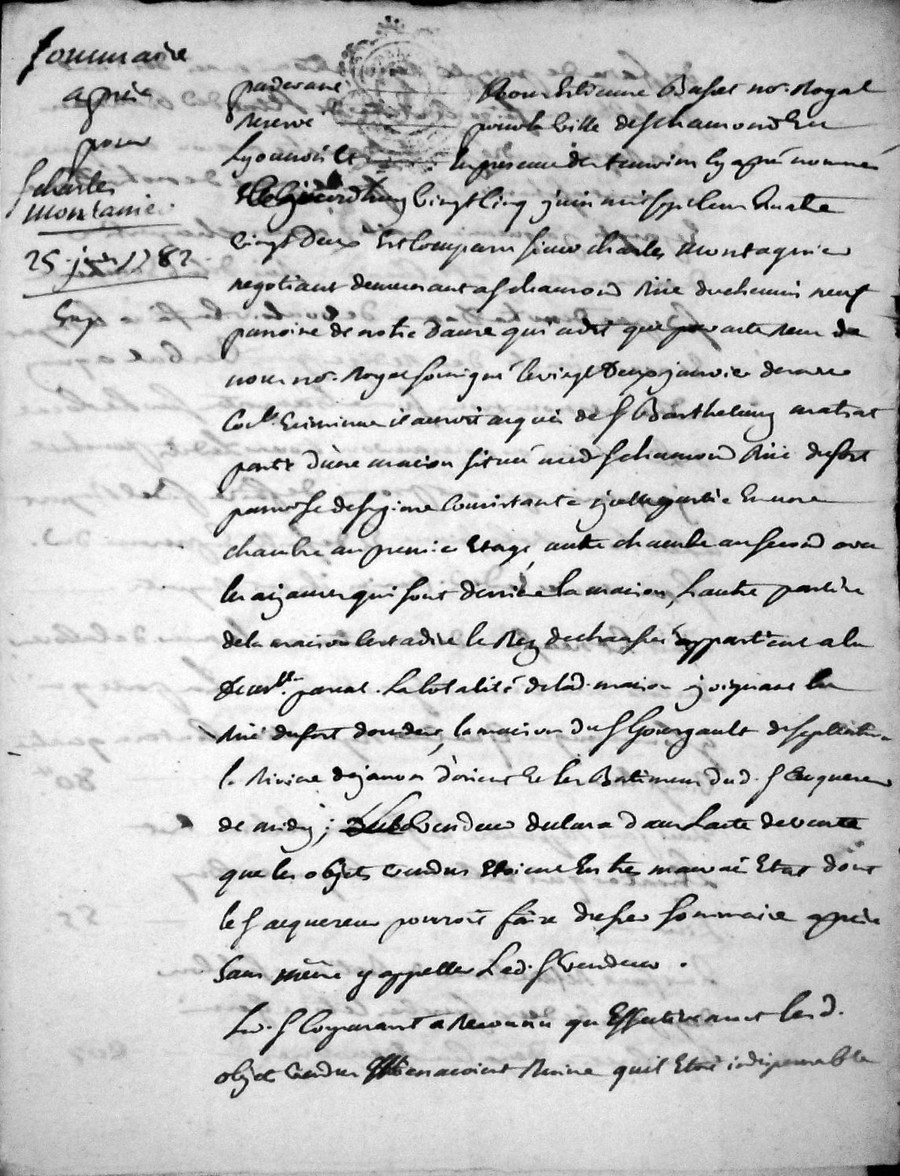 Sommaire
aprie
pour
S charles
Montanier
25 juin 1782
Exp
pardevant Nous Estienne no.re Royal
Reservé pour la ville de St chamond En
Lyonnois Et En presence des temoins cy apré nommé
vingt Cinq juin mil sept Cens quatre
vingt Deux Est Comparu sieur charles Montagnier
negotiant demeurant a St chamond Rue du chemin neuf
paroisse de notre Dame qui a dit que par acte Reçu de
nous no.re Royal soussigné le vingt Deux janvier dernier
il auroit acquis de S Barthelemy matrat
partie d'une maison située aud St chamond Rüe du fort
paroisse Consistante icelle partie En une
chambre au premier Etage, autre chambre au second avec
les aizances qui sont derriere la maison, L'autre partie
de la maison C'est a dire le Rez de chaussée appartient a la
La totalité de lad. maison joignant la
Rüe du fort la maison du S Gourgault de septentrion
la Riviere de janon d'orient Et les Batiments dud. S acquereur
de midy; Vendeur declara dans l'acte de vente
que les objets vendus Etoient En tres mauvai Etat dont
le S acquereur pourroit faire dresser sommaire aprie
Sans même y appeller Led. S Vendeur.
Led. S Comparant a Reconnu qu'Effectivement lesd.
objets vendus menacoient Ruine qu'il Etoit indispensable